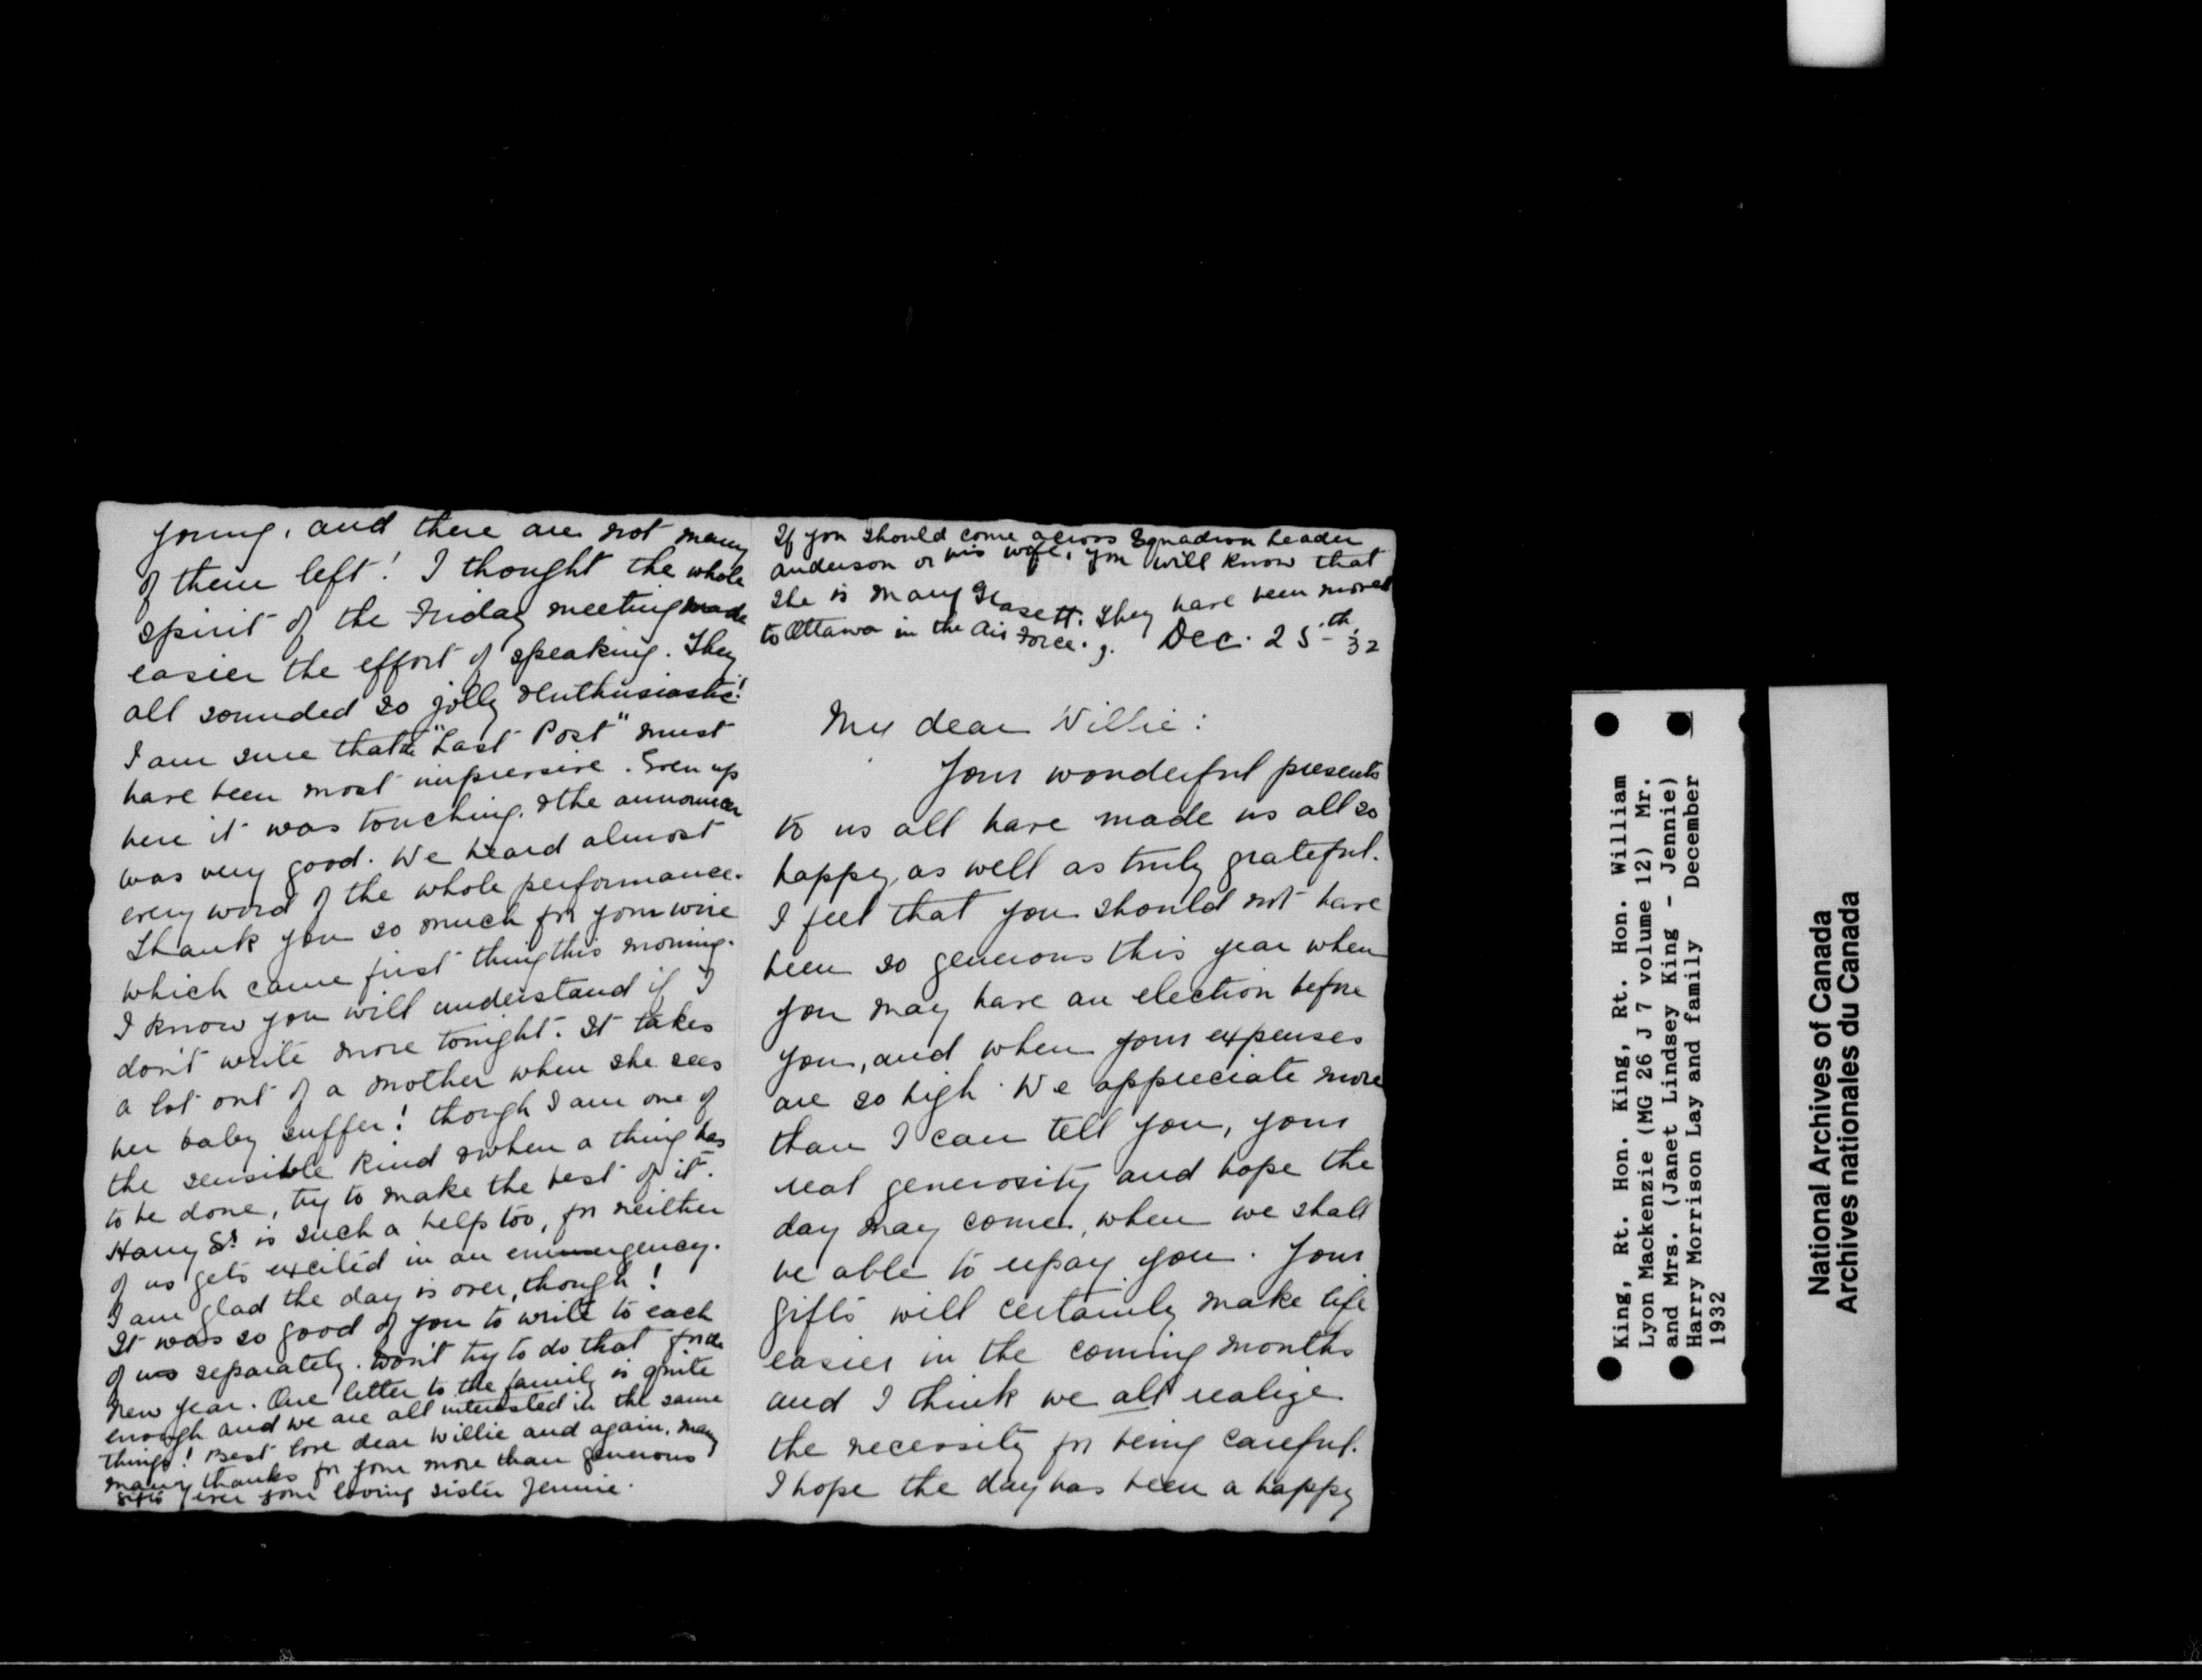 young, and there are not many
of them left! I thought the whole
spirit of the Friday meeting made
easier the effort of speaking. They
all sounded so jolly & enthusiastic!
I am sure that the "Last Post" must
have been most impressive. Even up
here it was touching, & the announcer
was very good. We heard almost
every word of the whole performance.
Thank you so much for your wire
which came first thing this morning.
I know you will understand if I
don't write more tonight. It takes
a lot out of a mother when she sees
her baby suffer! though I am one of
the sensible kind & when a thing has
to be done, try to make the best of it.
Harry Sr. is such a help too, for neither
of us gets excited in an emmergency.
I am glad the day is over, though!
It was so good of you to write to each
of us separately. Won't try to do that for the
New Year. One letter to the family is quite
enough and we are all interested in the same
things! Best love dear Willie and again, many
many thanks for your more than generous
gifts ever your loving sister Jennie.
If you should come across Squadron Leader
Anderson or his wife, you will know that
she is Mary They have been moved
to Ottawa in the Air Force. J.
Dec. 25th '32
My dear Willie:
Your wonderful presents
to us all have made us all so
happy, as well as truly grateful.
I feel that you should not have
been so generous this year when
you may have an election before
you, and when your expenses
are so high. We appreciate more
than I can tell you, your
real generosity and hope the
day may come, when we shall
be able to repay you. Your
gifts will certainly make life
easier in the coming months
and I think we all realize
the necessity for being careful.
I hope the day has been a happy
King, Rt. Hon. King, Rt. Hon. William
Lyon Mackenzie (MG 26 J 7 volume 12) Mr.
and Mrs. (Janet Lindsey King - Jennie)
Harry Morrison Lay and family December
1932
National Archives of Canada
Archives nationales du Canada